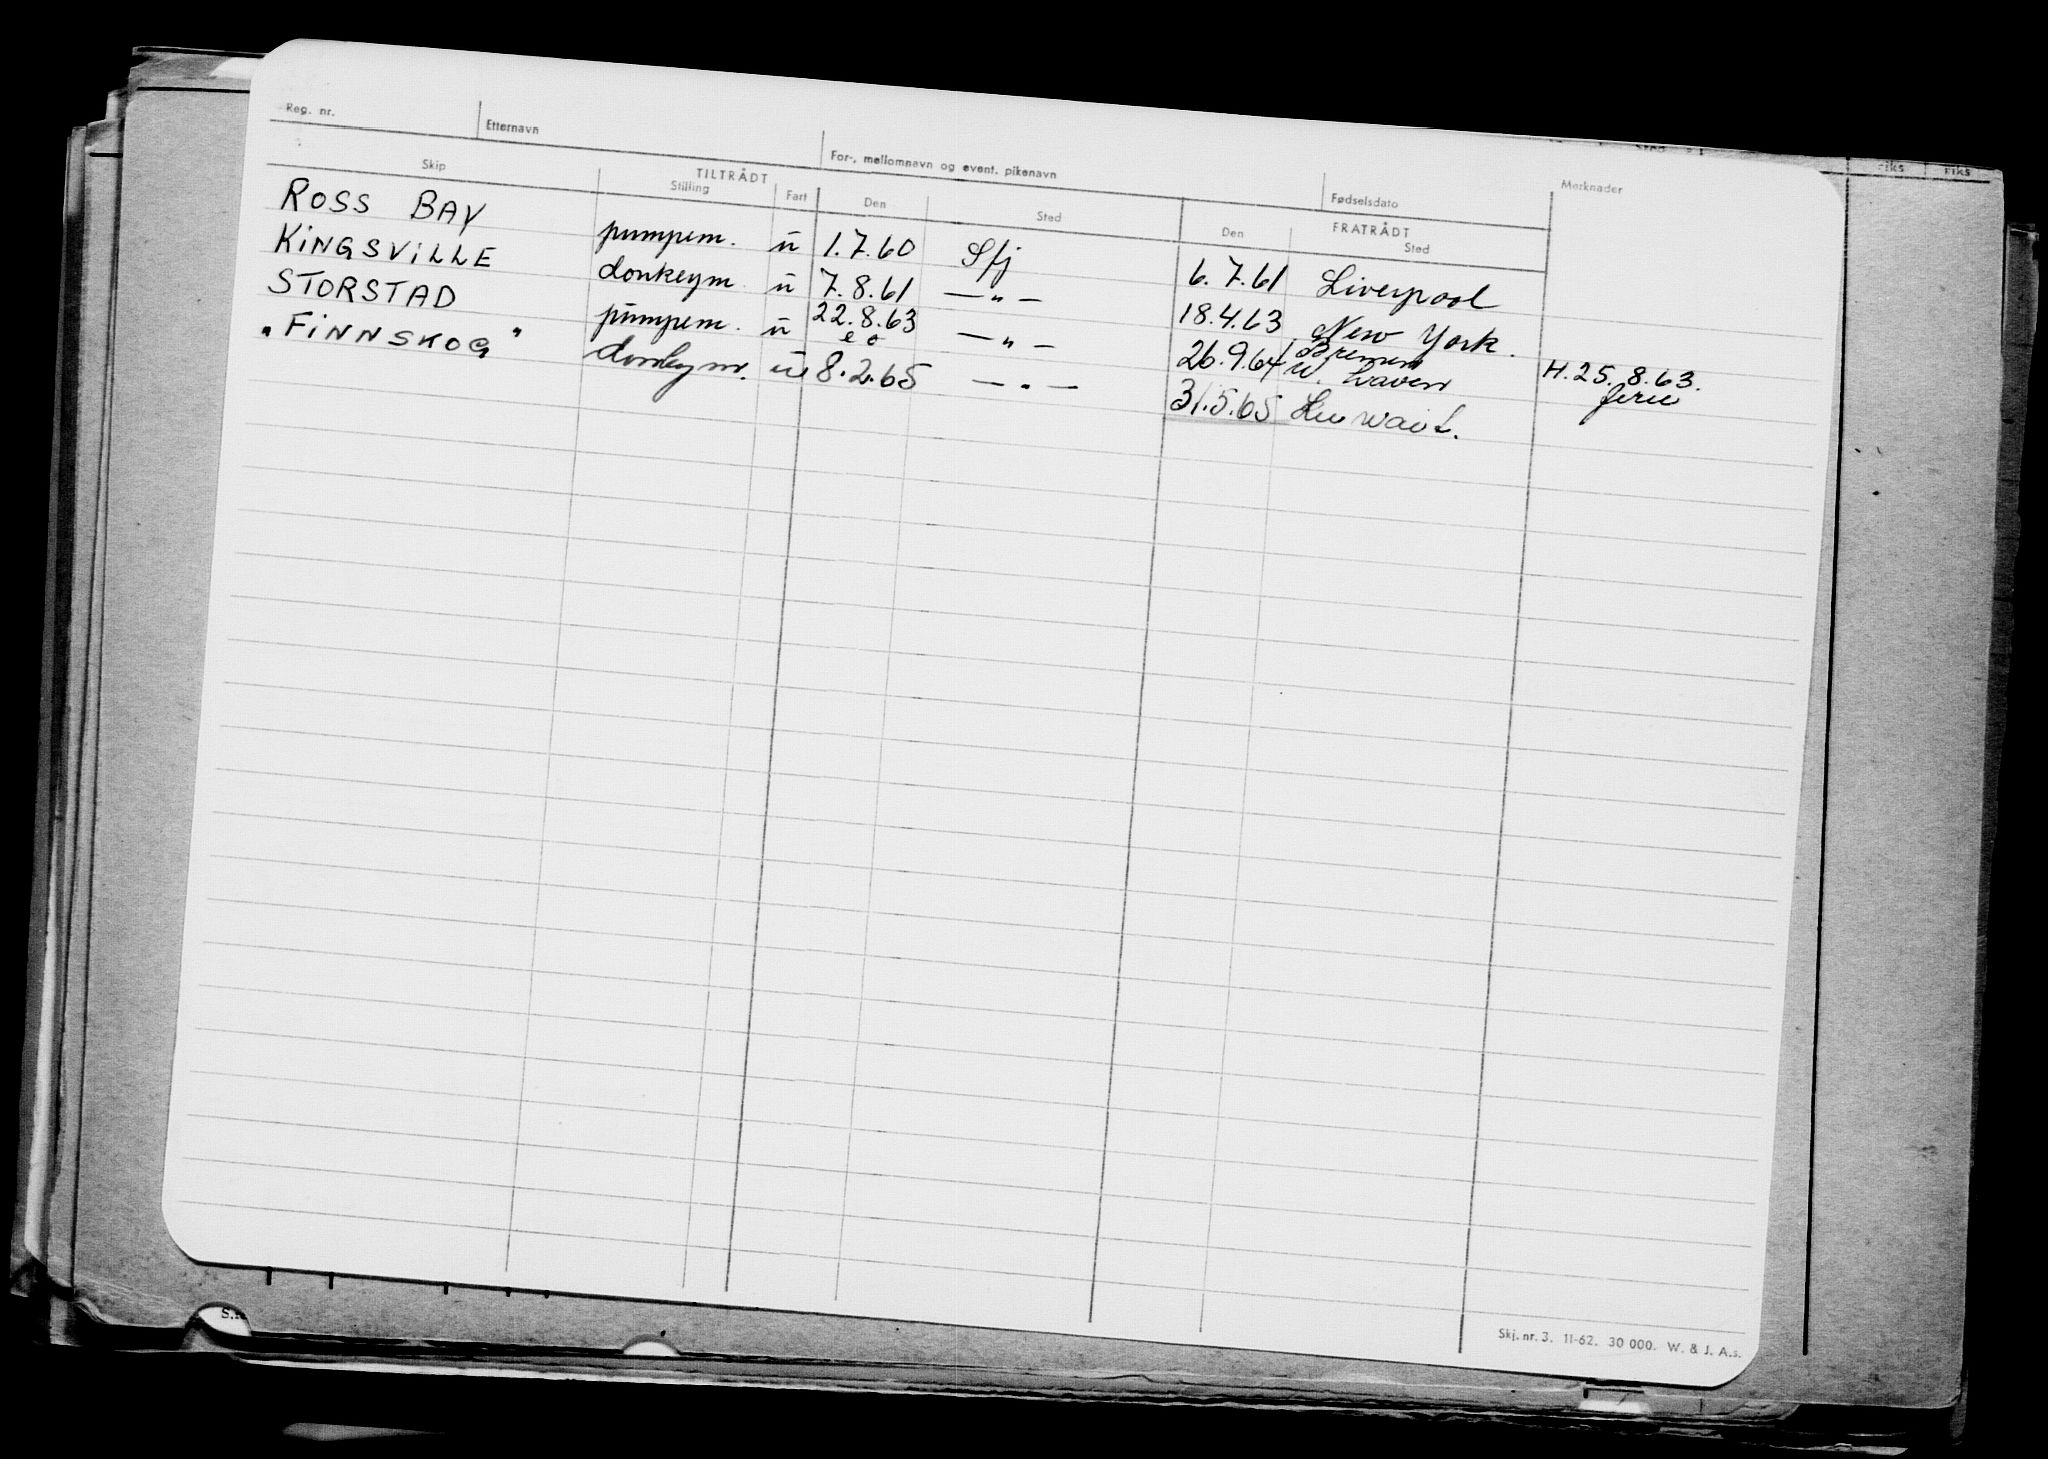 Reg. nr. Etternavn For-, mellomnavn og event. pikenavn Fødselsdato Merknader
Skip TILTRÅDT FRATRÅDT
Stilling Fart Den Sted Den Sted
ROSS BAY pumpem. u 1.7.60 Sfj 6.7.61 Liverpool
KINGSVILLE donkeym u 7.8.61 —"— 18.4.63 New York.
STORSTAD pumpem. u 22.8.63 —"— 26.9.64 Bremen H. 25.8.63.
e o W. haven
"FINNSKOG" donkeym. u 8.2.65 —"— 31.5.65
Skj. nr. 3. 11-62. 30 000. W. & J. A.s.
riks riks